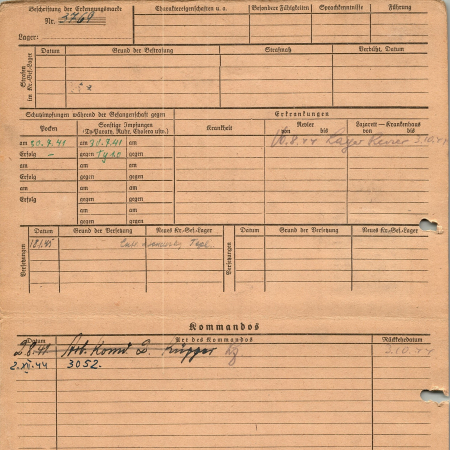 Beschriftung der Erkennungsmarke
Nr. 3769
Lager:
Charaktereigenschaften u. a.
Besondere Fähigkeiten
Sprachkenntnisse
Führung
Strafen im Kr.-Gef.-Lager
Datum
Grund der Bestrafung
Strafmaß
Verbüßt, Datum
Schutzimpfungen während der Gefangenschaft gegen
Erkrankungen
Pocken
Sonstige Impfungen (Ty.-Paraty., Ruhr, Cholera usw.)
Krankheit
Revier
von bis
Lazarett – Krankenhaus
von bis
am 30.9.41 am 30.9.41 am
Erfolg – gegen Typh gegen
am am am
Erfolg gegen gegen
am am am
Erfolg gegen gegen
am am
gegen gegen
am am
gegen gegen
16.8.44 Lager Revier 3.10.44
Versetzungen
Datum
Grund der Versetzung
Neues Kr.-Gef.-Lager
Versetzungen
Datum
Grund der Versetzung
Neues Kr.-Gef.-Lager
18.1.45
Kommandos
Datum
Art des Kommandos
Rückkehrdatum
Arb. Komd. 3.10.44
2.XI.44 3052.